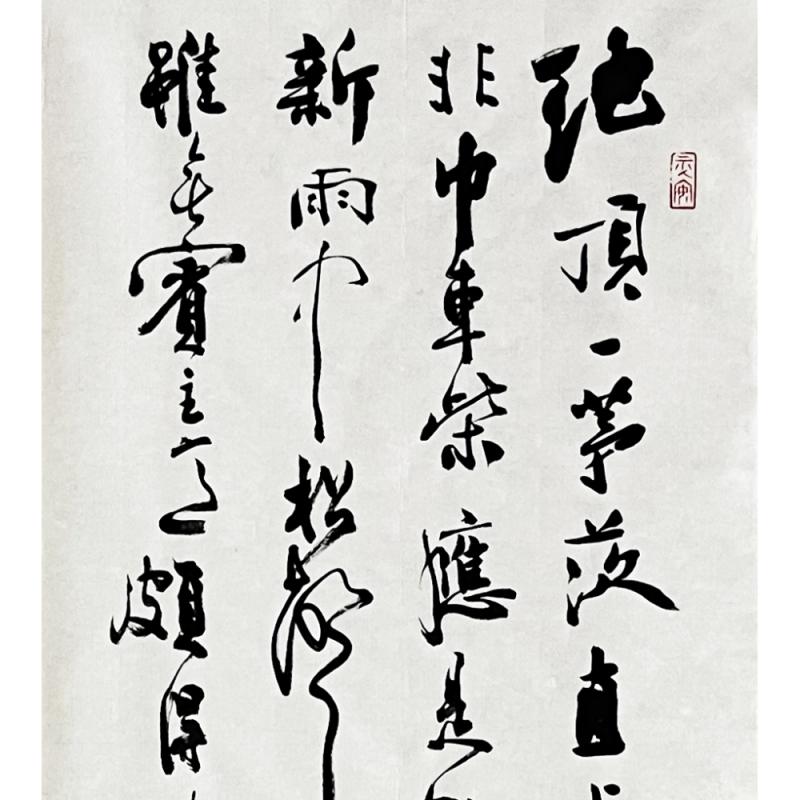 絶頂一茅茨直
非巾車柴應是
新雨中松聲
雖無賓主意頗得